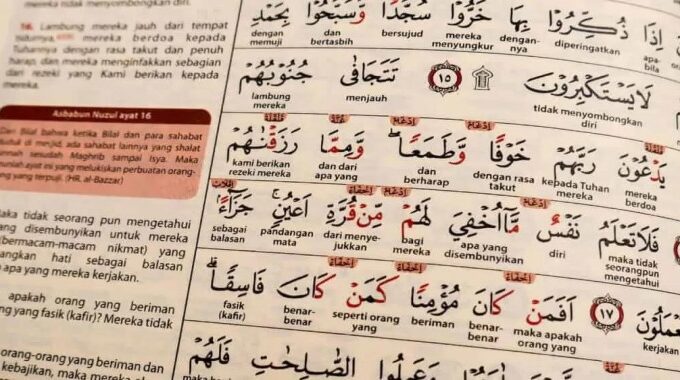 mereka tidak menyombongkan diri.
16. Lambung mereka jauh dari tempat
tidurnya, mereka berdoa kepada
Tuhannya dengan rasa takut dan penuh
harap, dan mereka menginfakkan sebagian
dari rezeki yang Kami berikan kepada
mereka.
Asbabun Nuzul ayat 16
Dari Bilal bahwa ketika Bilal dan para sahabat
duduk di mesjid, ada sahabat lainnya yang shalat
sunah sesudah Maghrib sampai Isya. Maka
turunlah ayat ini yang melukiskan perbuatan orang-
orang yang terpuji. (HR. al-Bazzar)
Maka tidak seorang pun mengetahui
yang disembunyikan untuk mereka
(bermacam-macam nikmat) yang
hati sebagai balasan
apa yang mereka kerjakan.
apakah orang yang beriman
yang fasik (kafir)? Mereka tidak
orang-orang yang beriman dan
kebajikan, maka mereka
اِذَا ذُكِّرُوْا بِهَا خَرُّوْا سُجَّدًا وَّسَبَّحُوْا بِحَمْدِ
apa-bila diperingatkan dengan-nya mereka menyungkur bersujud dan bertasbih dengan memuji
لَا يَسْتَكْبِرُوْنَ ۩ ١٥ تَتَجَافٰى جُنُوْبُهُمْ
tidak menyombongkan diri menjauh lambung mereka
يَدْعُوْنَ رَبَّهُمْ خَوْفًا وَّطَمَعًا وَّمِمَّا رَزَقْنٰهُمْ
mereka berdoa kepada Tuhan mereka dengan rasa takut dan berharap dan dari apa yang kami berikan rezeki mereka
فَلَا تَعْلَمُ نَفْسٌ مَّآ اُخْفِيَ لَهُمْ مِّنْ قُرَّةِ اَعْيُنٍۚ جَزَاۤءًۢ
maka tidak mengetahui seorangpun diri apa yang disembunyikan bagi mereka dari menye-jukkan pandangan mata sebagai balasan
١٧ اَفَمَنْ كَانَ مُؤْمِنًا كَمَنْ كَانَ فَاسِقًاۗ
kerjakan maka apakah orang yang benar-benar beriman seperti orang yang benar-benar fasik (kafir)
وَعَمِلُوا الصّٰلِحٰتِ فَلَهُمْ